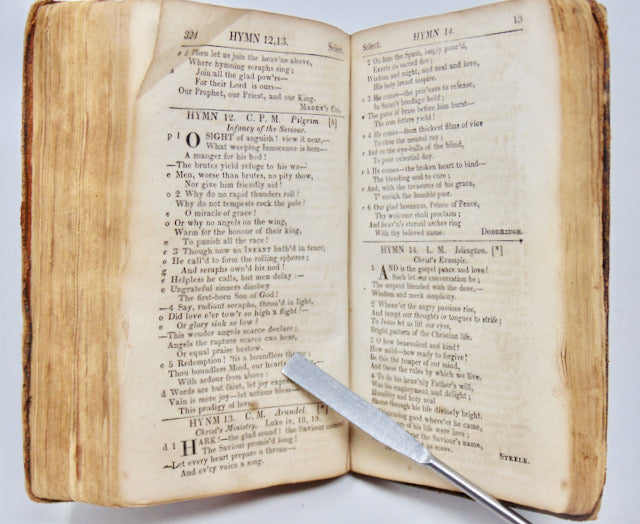 324 HYMN 12,13. Select.
e 5 Then let us join the heav'ns above,
Where hymning seraphs sing;
Join all the glad pow'rs—
For their Lord is ours—
Our Prophet, our Priest, and our King.
MADEN'S COL.
HYMN 12. C. P. M. Pilgrim [b]
Infancy of the Saviour.
p 1 O SIGHT of anguish! view it near,—
What weeping Innocence is here—
A manger for his bed!
—The brutes yield refuge to his wo—
e Men, worse than brutes, no pity show,
Nor give him friendly aid!
o 2 Why do no rapid thunders roll?
Why do not tempests rock the pole?
e O miracle of grace!
o Or why no angels on the wing,
Warm for the honour of their king,
e To punish all the race!
e 3 Though now an INFANT bath'd in tears,
o He call'd to form the rolling spheres;
g And seraphs own'd his nod!
e Helpless he calls, but men delay:—
e Ungrateful sinners disobey
The first-born Son of God!
—4 Say, radiant seraphs, thron'd in light,
o Did love e'er tow'r so high a flight—
e Or glory sink so low!
—This wonder angels scarce declare;
Angels the rapture scarce can hear,
Or equal praise bestow.
e 5 Redemption! 'tis a boundless
Thou boundless Mind, our hearts
With ardour from above:
d Words are but faint, let joy express
Vain is mere joy—let actions bless
This prodigy of love.
HYNM 13. C. M. Arundel. [*]
Christ's Ministry. Luke iv, 18, 19.
d 1 HARK!—the glad sound! the Saviour comes
The Saviour promis'd long!
—Let every heart prepare a throne—
And ev'ry voice a song.
Select. HYMN 14. 13
2 On him the Spirit, largely pour'd,
Exerts its sacred fire;
Wisdom and might, and zeal and love,
His holy breast inspire.
e 3 He comes—the pris'ners to release,
In Satan's bondage held;
The gates of brass before him burst—
The iron fetters yield!
e 4 He comes—from thickest films of vice
To clear the mental ray;
And on the eye-balls of the blind,
To pour celestial day.
e 5 He comes—the broken heart to bind—
The bleeding soul to cure;
And, with the treasures of his grace,
T' enrich the humble poor.
6 Our glad hosannas, Prince of Peace,
Thy welcome shall proclaim;
And heav'n's eternal arches ring
With thy beloved name. DODDRIDGE.
HYMN 14. L. M. Islington. [*]
Christ's Example.
1 AND is the gospel peace and love!
Such let our conversation be;
The serpent blended with the dove,—
Wisdom and meek simplicity.
2 Whene'er the angry passions rise,
And tempt our thoughts or tongues to strife;
To Jesus let us lift our eyes,
Bright pattern of the Christian life.
3 O how benevolent and kind!
How mild—how ready to forgive!
Be this the temper of our mind,
And these the rules by which we live.
4 To do his heav'nly Father's will,
Was his employment and delight;
Humility and holy zeal
Shone through his life divinely bright.
good where'er he came,
of his life were love;
the Saviour's name,
us move. STEELE.